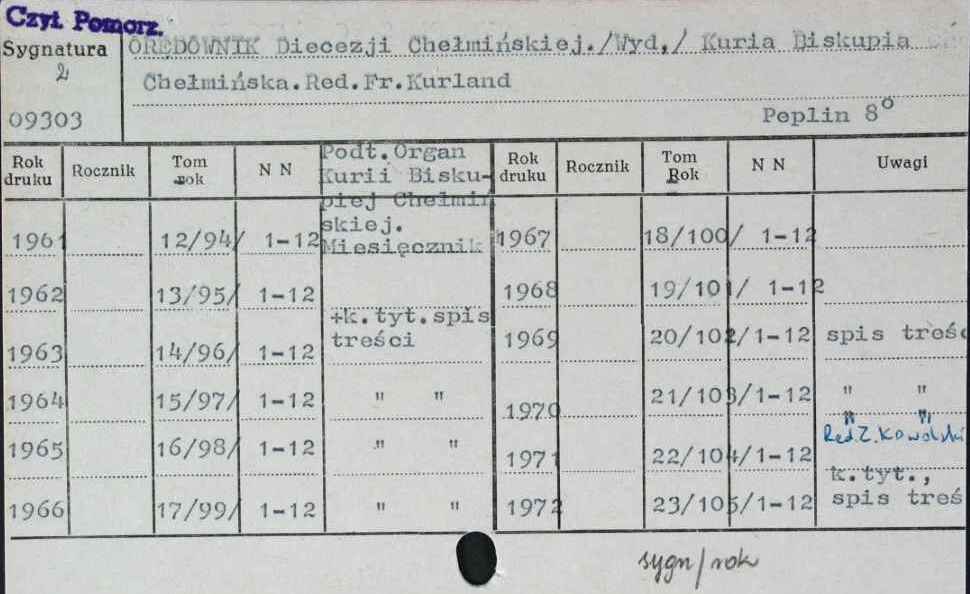 Czyt. Pomorz.
Sygnatura ORĘDOWNIK Diecezji Chełmińskiej./Wyd./ Kuria Biskupia
2
Chełmińska.Red.Fr.Kurland
09303
Peplin 8°
Rok druku Rocznik Tom rok N N Podt.Organ Kurii Bisku- Rok druku Rocznik Tom Rok N N Uwagi
piej Chełmiń
skiej.
1961 12/94/ 1-12 Miesięcznik 1967 18/100/ 1-12
1962 13/95/ 1-12 1968 19/101/ 1-12
+k.tyt.spis
1963 14/96/ 1-12 treści 1969 20/102/1-12 spis treśc
1964 15/97/ 1-12 " " 1970 21/103/1-12 " "
" "
Red.Z.Kowalski
1965 16/98/ 1-12 " " 1971 22/104/1-12
k.tyt.,
1966 17/99/ 1-12 " " 1972 23/105/1-12 spis treś
sygn/rok